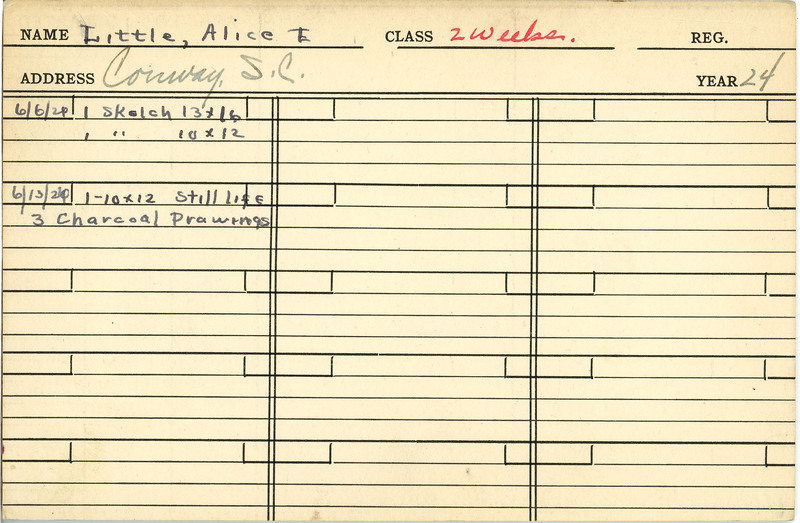 NAME Little, Alice I CLASS 2 Weeks. REG.
ADDRESS Conway, S.C. YEAR 24
6/6/24 1 Sketch 13x16
1 " 10x12
6/13/24 1-10x12 Still life
3 Charcoal Drawings